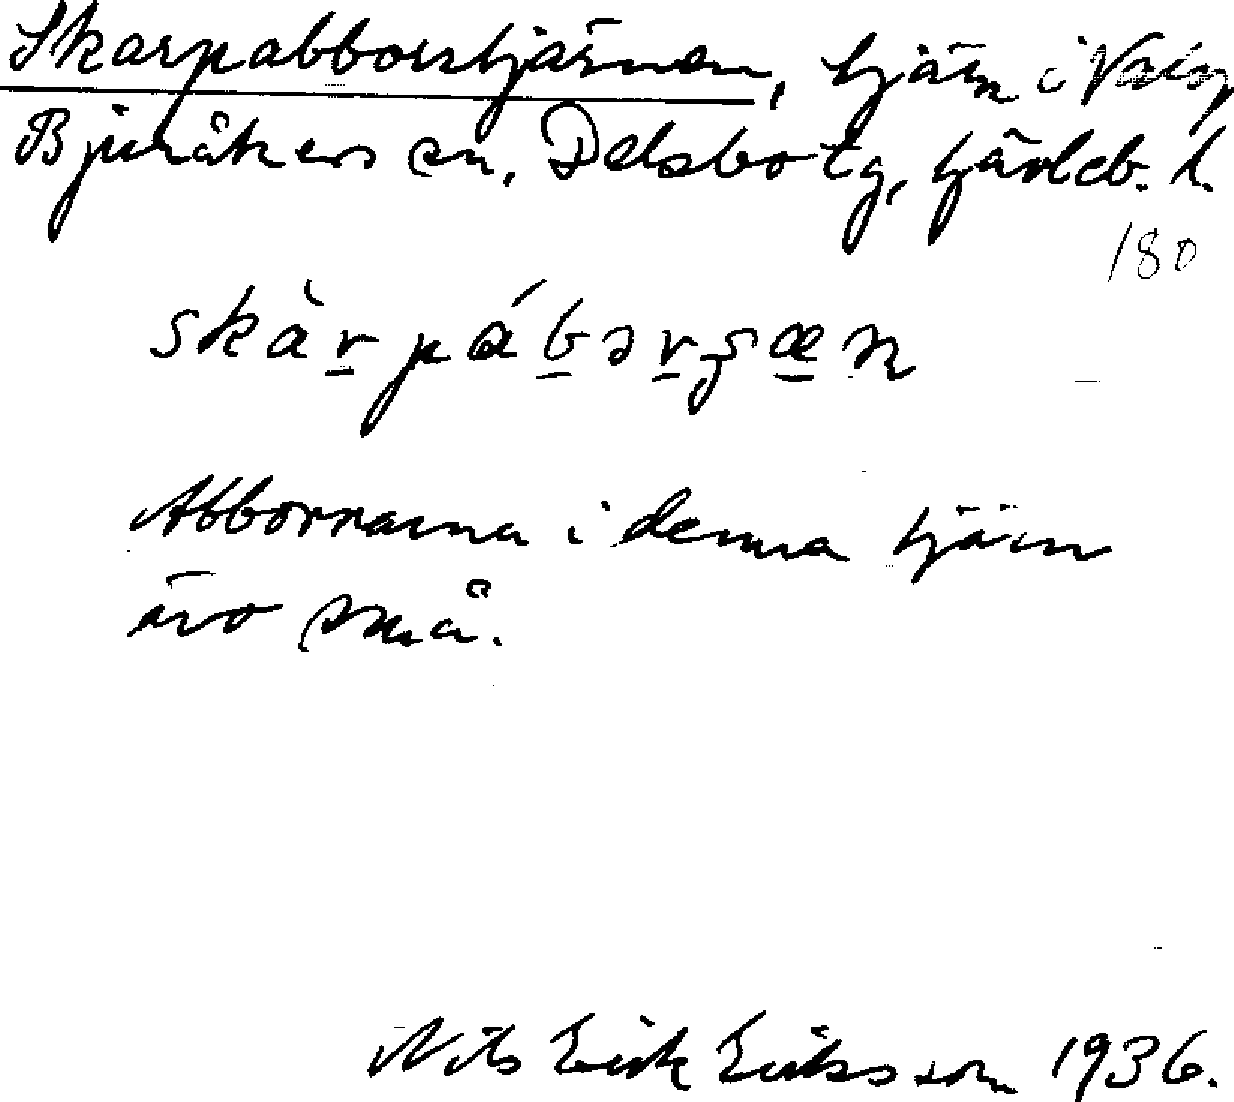 Skarpabborrtjärnen, tjärn i Norr,
Bjuråkers sn, Delsbo tg, Gävleb. l.
180
skàrpábərʂæn
Abborrarna i denna tjärn
äro små.
Nils Erik Eriksson 1936.